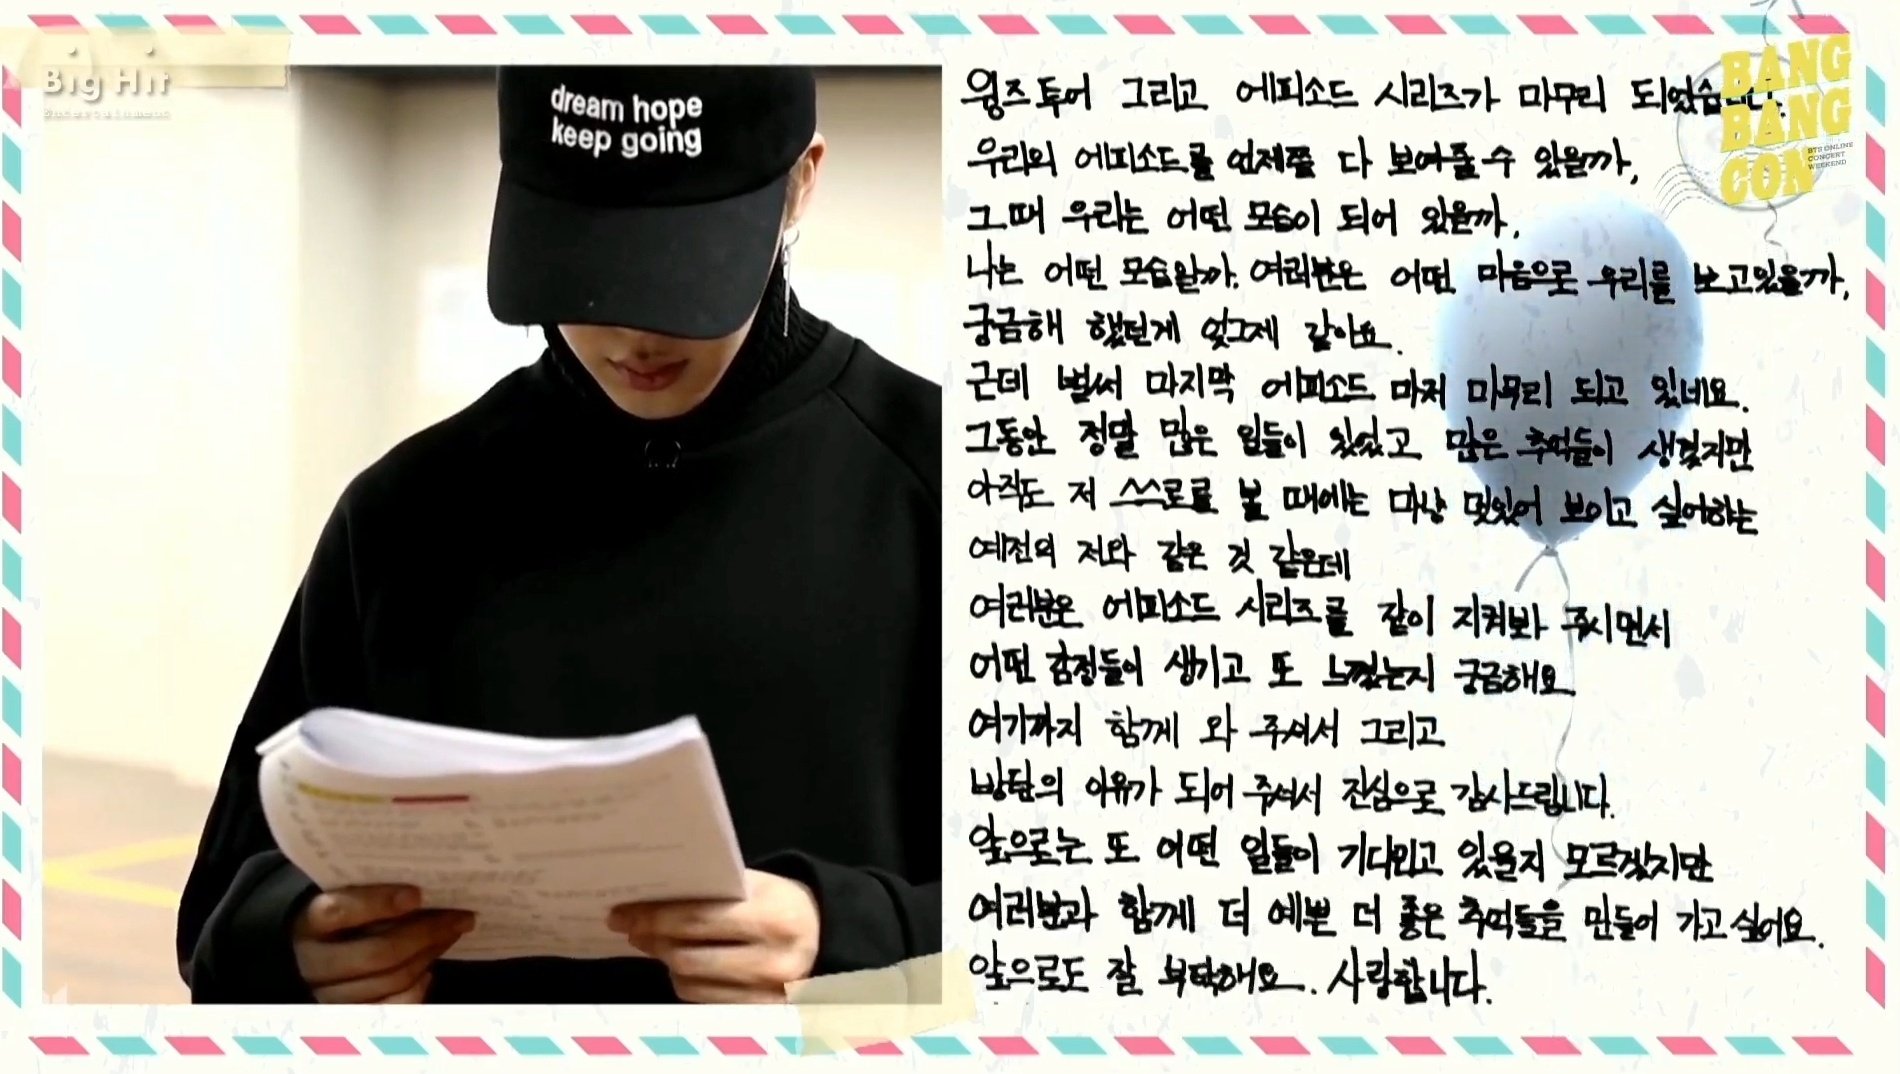 Big Hit
Entertainment
dream hope
keep going
BANG
BANG
CON
BTS ONLINE
CONCERT
WEEKEND
윙즈투어 그리고 에피소드 시리즈가 마무리 되었습니다.
우리의 에피소드를 언제쯤 다 보여줄 수 있을까,
그때 우리는 어떤 모습이 되어 있을까,
나는 어떤 모습일까. 여러분은 어떤 마음으로 우리를 보고있을까,
궁금해 했던게 엊그제 같아요.
근데 벌써 마지막 에피소드 마저 마무리 되고 있네요.
그동안 정말 많은 일들이 있었고 많은 추억들이 생겼지만
아직도 저 스스로를 볼 때에는 마냥 멋있어 보이고 싶어하는
예전의 저와 같은 것 같은데
여러분은 에피소드 시리즈를 같이 지켜봐 주시면서
어떤 감정들이 생기고 또 느꼈는지 궁금해요
여기까지 함께 와 주셔서 그리고
방탄의 이유가 되어 주셔서 진심으로 감사드립니다.
앞으로는 또 어떤 일들이 기다리고 있을지 모르겠지만
여러분과 함께 더 예쁜 더 좋은 추억들을 만들어 가고 싶어요.
앞으로도 잘 부탁해요. 사랑합니다.